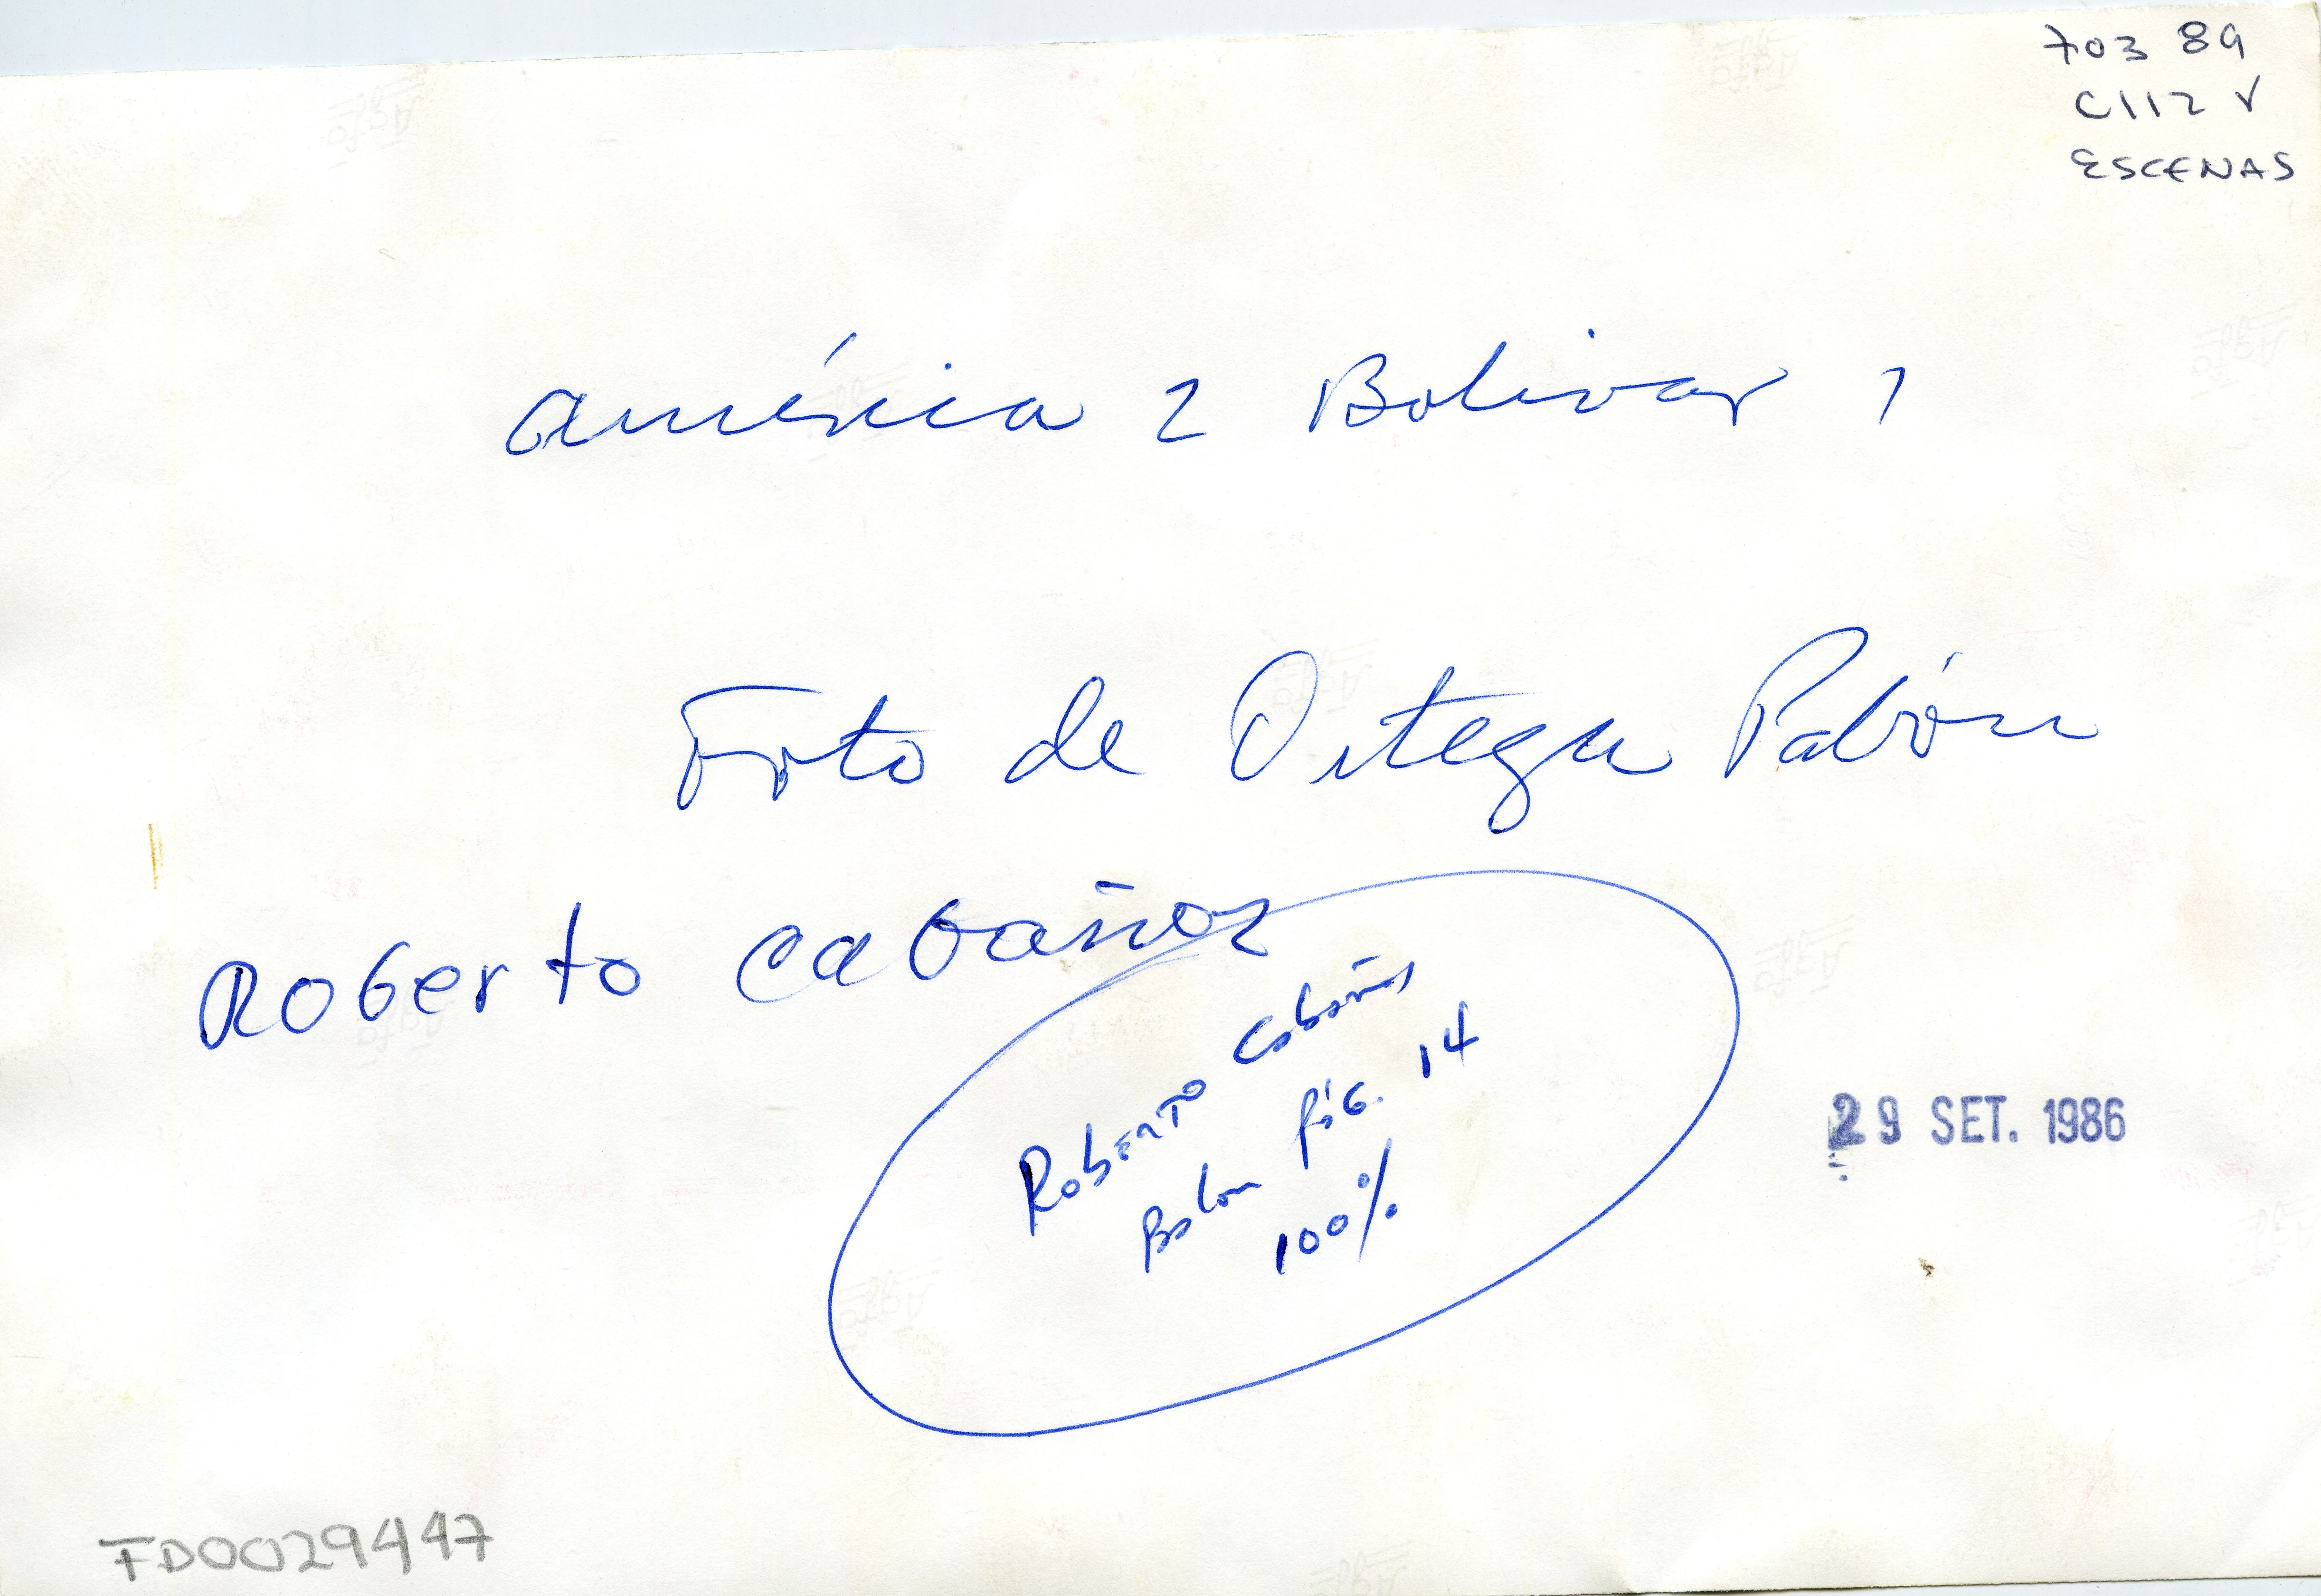 703 89
C112 V
ESCENAS
América 2 Bolivar 1
Foto de Ortega Pabón
Roberto Cabañas
Roberto Cabañas
Balon Pág. 14
100%
29 SET. 1986
FD0029447